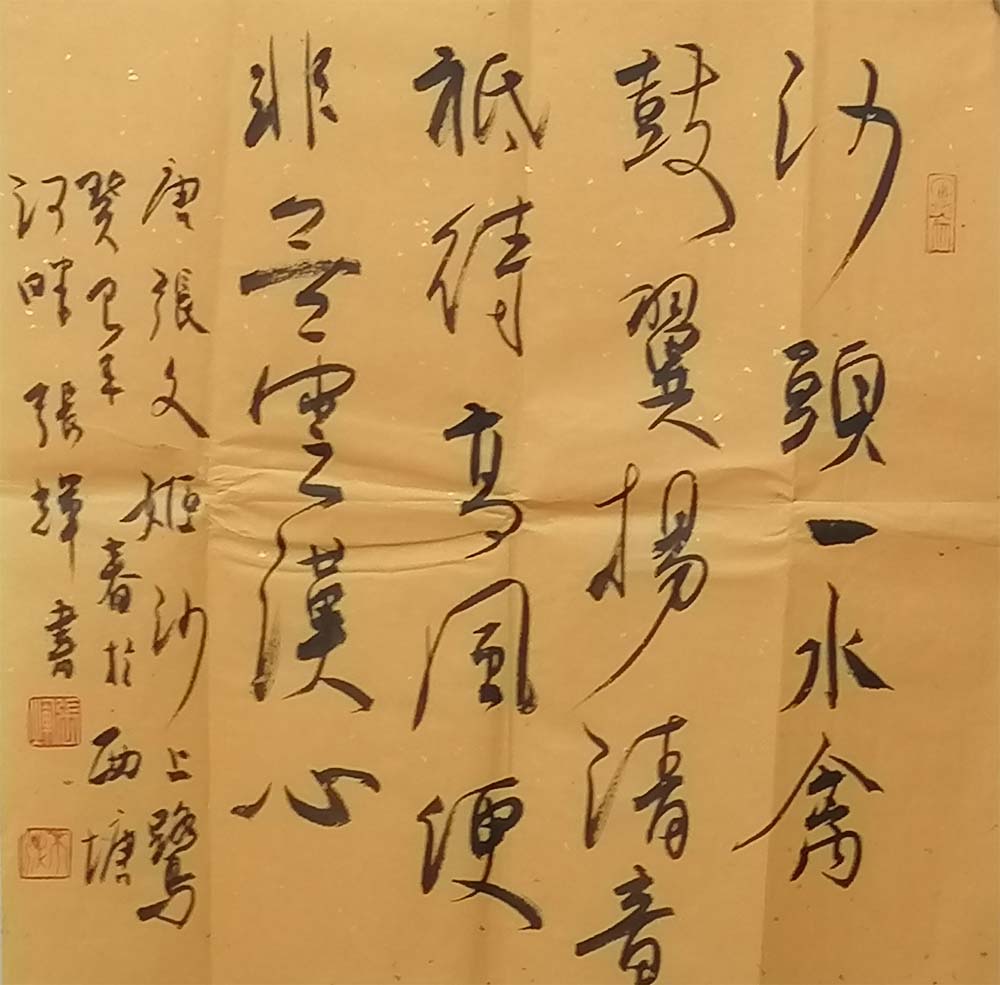 沙頭一水禽
鼓翼揚清音
祗待高風便
非無雲漢心
唐張文姬沙上鷺
癸巳年春於西塘
河畔張輝書